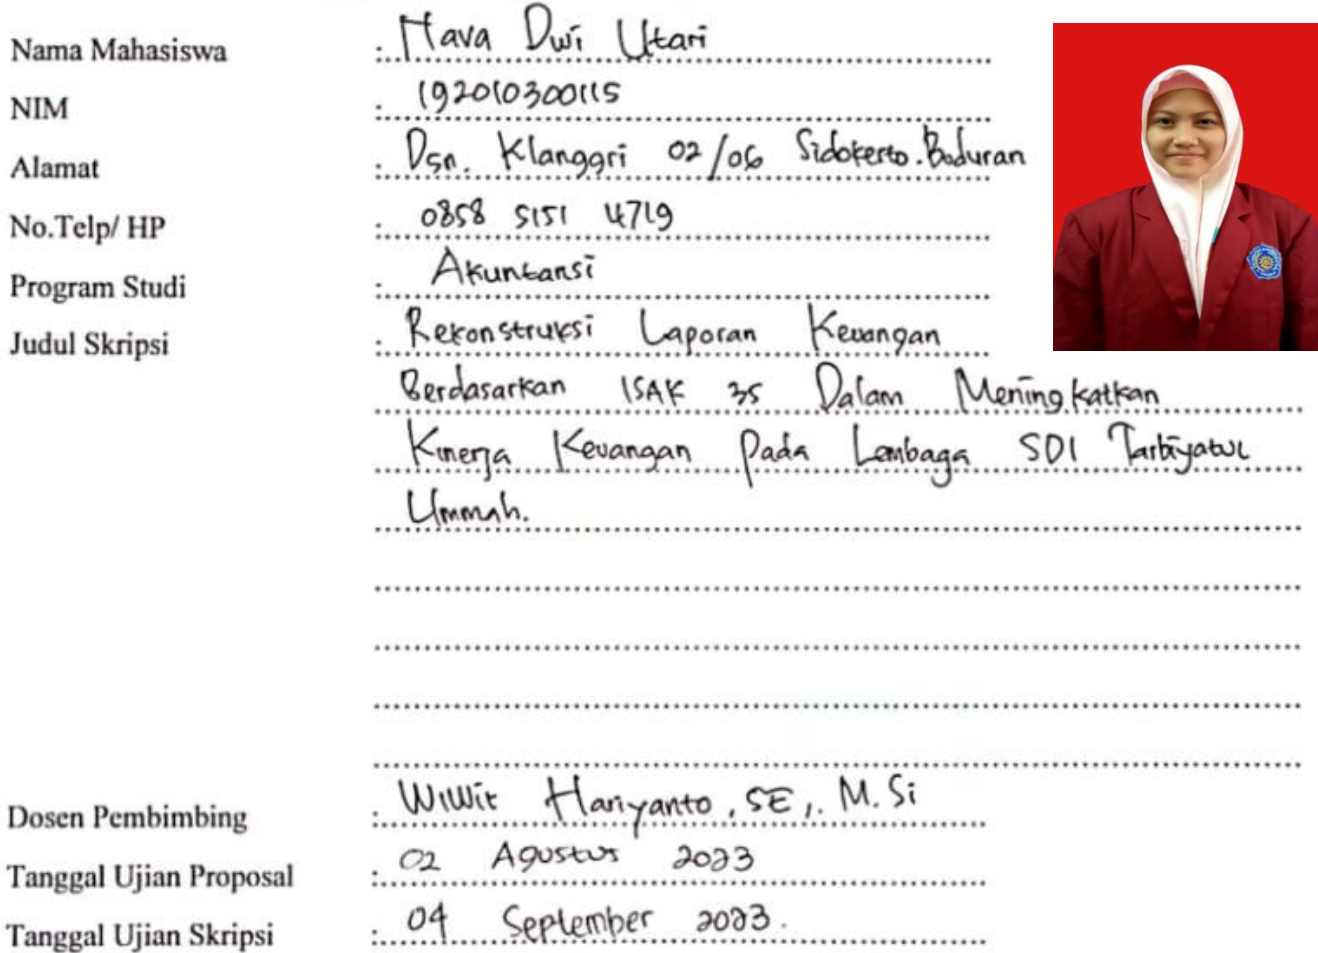 Nama Mahasiswa : Mava Dwi Utari
NIM : 192010300115
Alamat : Dsn. Klanggri 02/06 Sidokerto. Buduran
No.Telp/ HP : 0858 5151 4719
Program Studi : Akuntansi
Judul Skripsi : Rekonstruksi Laporan Keuangan
Berdasarkan ISAK 35 Dalam Meningkatkan
Kinerja Keuangan Pada Lembaga SDI Tarbiyatul
Ummah.
Dosen Pembimbing : Wiwit Hariyanto, SE,. M.Si
Tanggal Ujian Proposal : 02 Agustus 2023
Tanggal Ujian Skripsi : 04 September 2023.